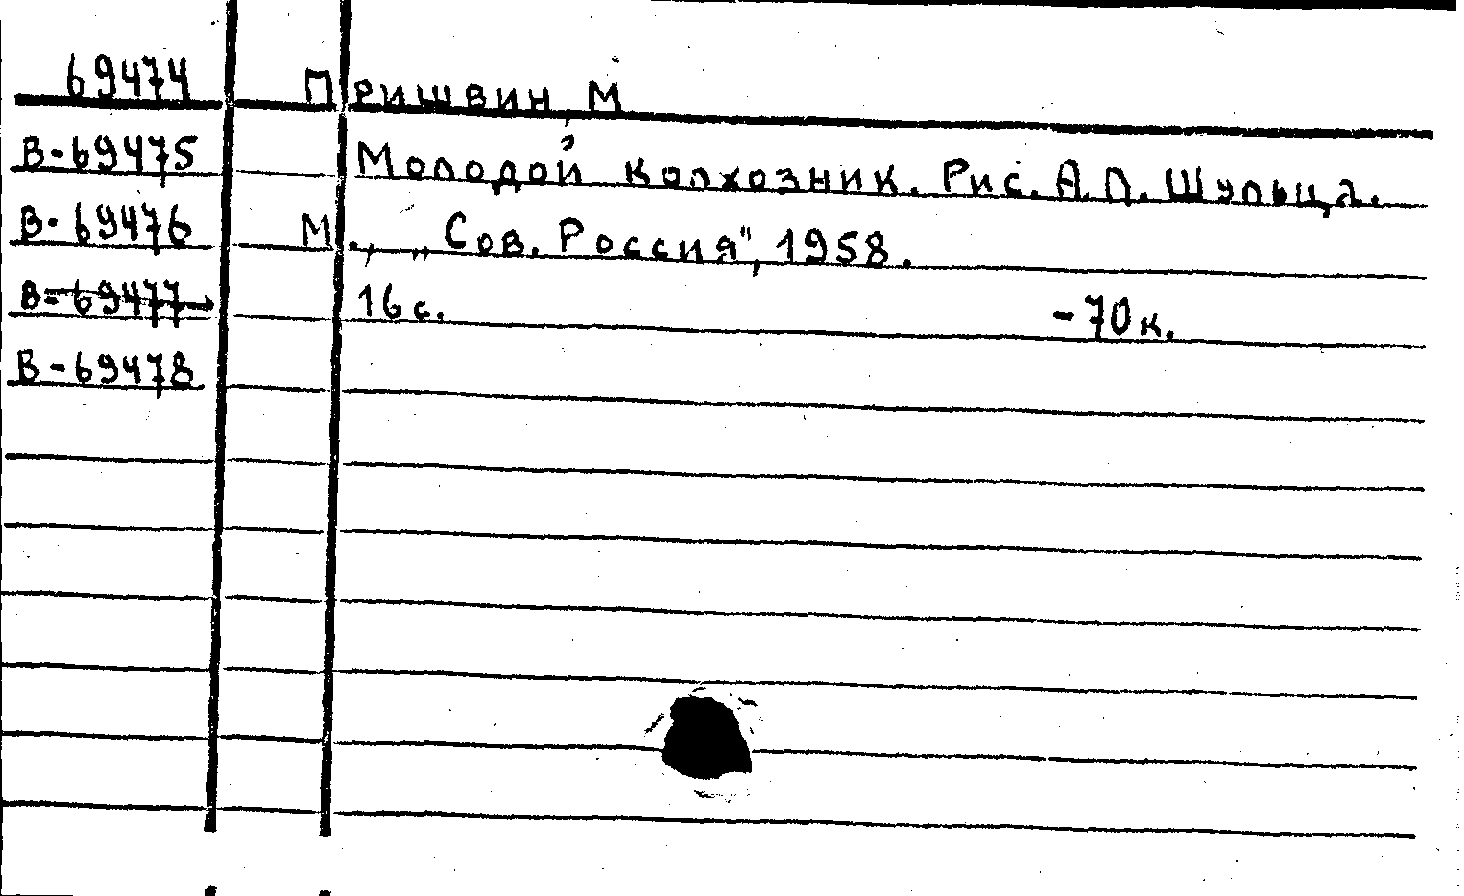 69474 Пришвин М
В-69475 Молодой колхозник. Рис. А.П. Шульца.
В-69476 М., „Сов. Россия", 1958.
В-69477 16 с. -70 к.
В-69478